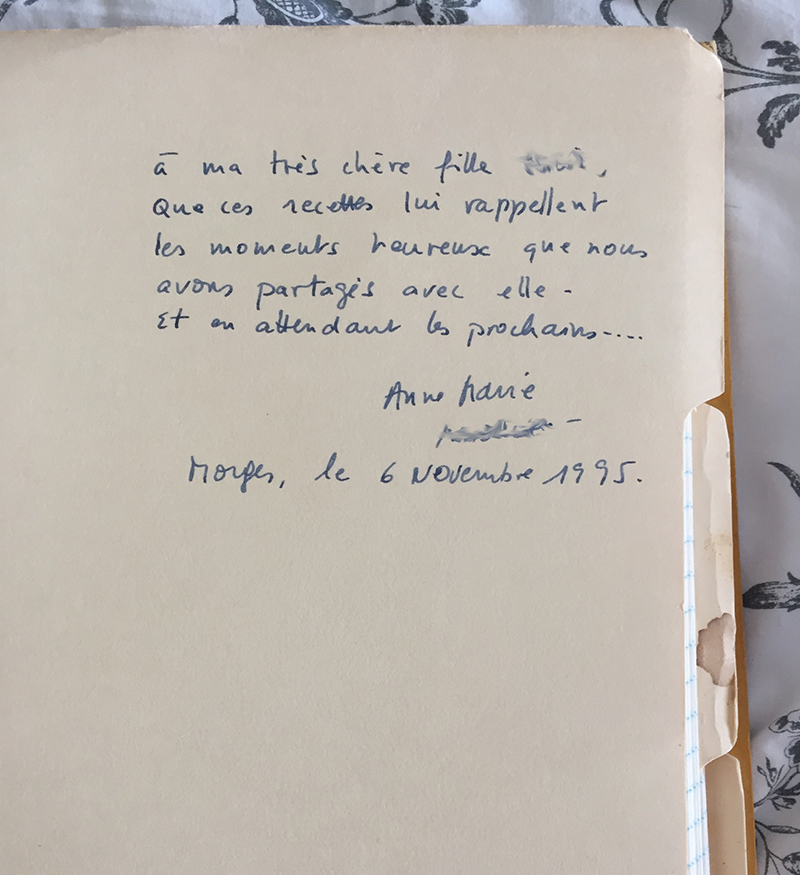 à ma très chère fille ,
Que ces recettes lui rappellent
les moments heureux que nous
avons partagés avec elle -
Et en attendant les prochains-....
Anne Marie
Morges, le 6 Novembre 1995.